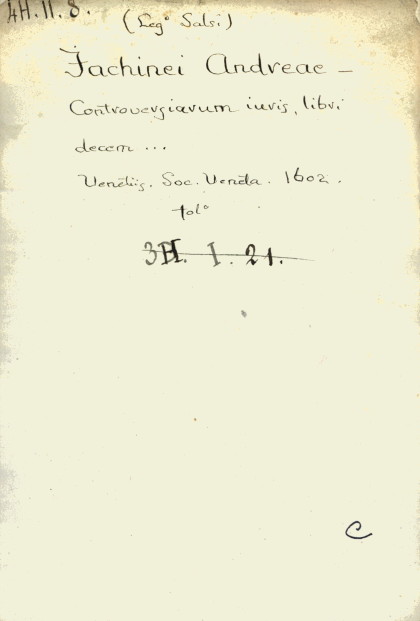 4H.11.8.
(Leg° Salsi)
Fachinei Andreae –
Controversiarum iuris, libri
decem ...
Venetiis. Soc. Veneta. 1602.
fol°
3H. I. 21.
C